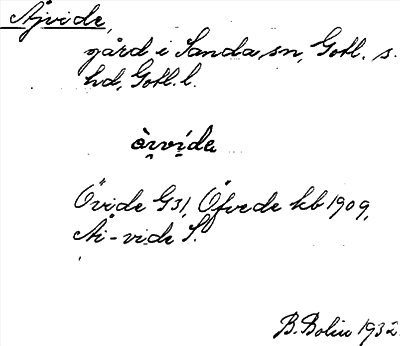 Ajvide,
gård i Sanda sn, Gotl. s.
hd, Gotl. l.
Övide G31, Öfvede kb 1909,
Ai-vide S.
B. Bolin 1932.